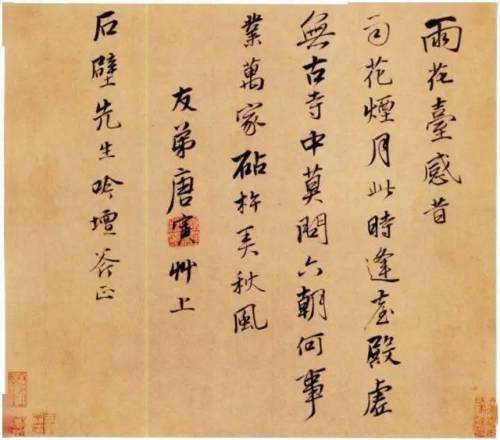 雨花臺感昔
司花煙月此時逢臺殿虛
無古寺中莫問六朝何事
業萬家砧杵美秋風
友弟唐寅艸上
石壁先生吟壇荅正